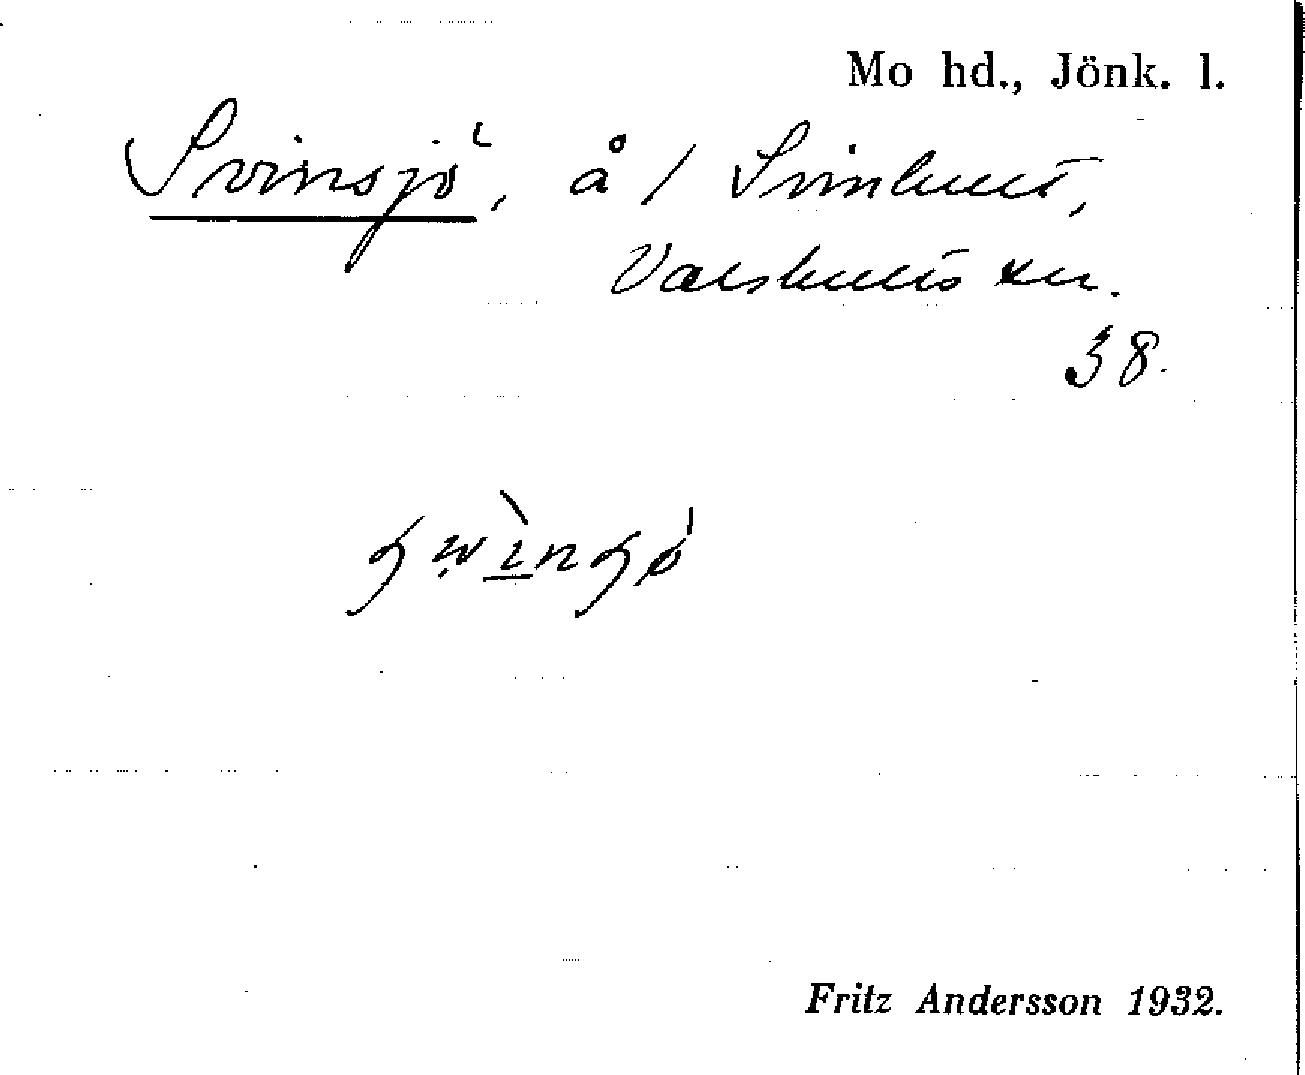 Mo hd., Jönk. l.
Svinsjö, å / Svinhult,
Valshults sn.
38.
Fritz Andersson 1932.